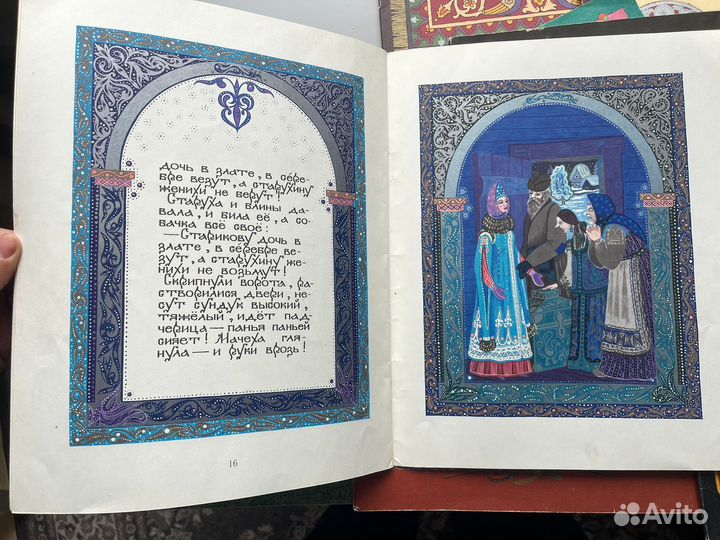 дочь в злате, в сереб-
ре везут, а старухину
женихи не берут!
Старуха и блины да-
вала, и била её, а со-
бачка всё своё:
— Старикову дочь в
злате, в серебре ве-
зут, а старухину же-
нихи не возьмут!
Скрипнули ворота, ра-
створилися двери, не-
сут сундук высокий,
тяжёлый, идёт пад-
черица — панья паньей
сияет! Мачеха гля-
нула — и руки врозь!
16
Avito